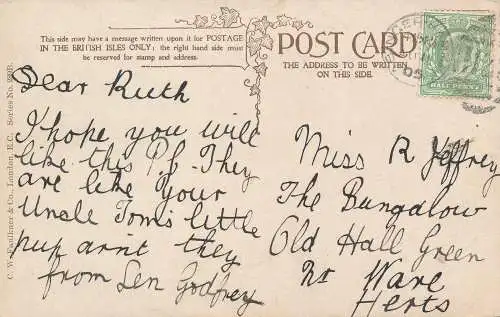 This side may have a message written upon it for POSTAGE
IN THE BRITISH ISLES ONLY; the right hand side must
be reserved for stamp and address.
POST CARD
THE ADDRESS TO BE WRITTEN
ON THIS SIDE.
HALF PENNY
C. W. Faulkner & Co., London, E.C. Series No.
Dear Ruth
I hope you will
like this P.C. They
are like your
Uncle Tom's little
pup arn't they
from Len Godfrey
Miss R Jeffrey
The Bungalow
Old Hall Green
Nr Ware
Herts